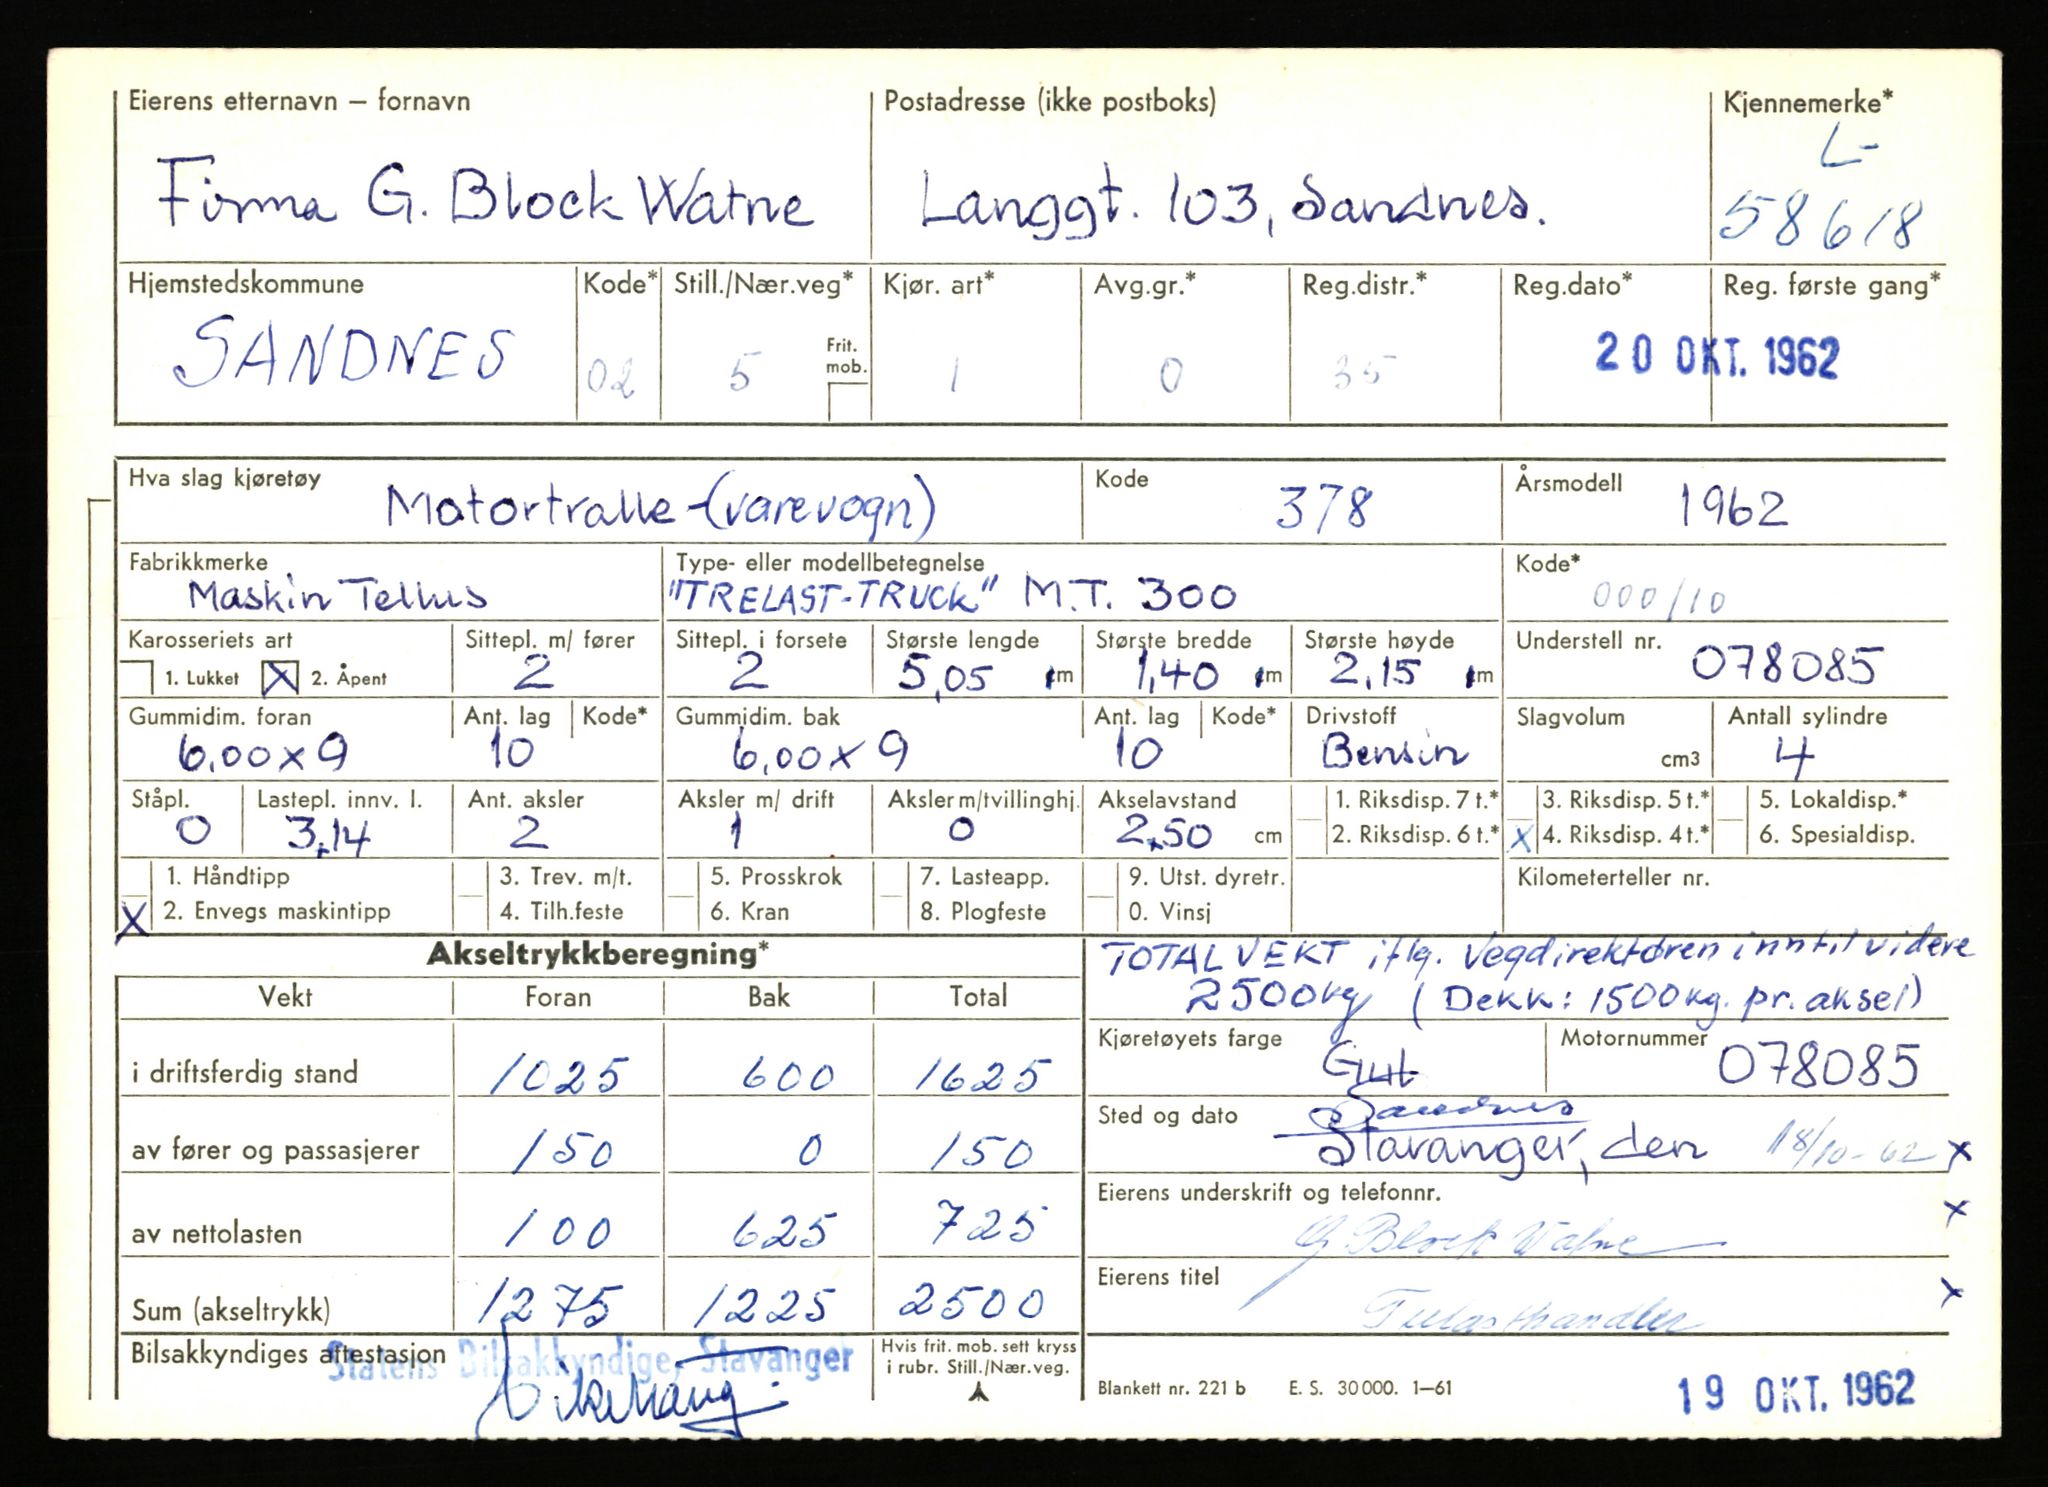 Eierens etternavn – fornavn Postadresse (ikke postboks) Kjennemerke*
Firma G. Block Watne Langgt. 103, Sandnes. L-
58618
Hjemstedskommune Kode* Still./Nær.veg* Kjør. art* Avg.gr.* Reg.distr.* Reg.dato* Reg. første gang*
SANDNES 02 5 Frit. mob. 1 0 35 20 OKT. 1962
Hva slag kjøretøy Motortralle-(varevogn) Kode 378 Årsmodell 1962
Fabrikkmerke Type- eller modellbetegnelse Kode*
Maskin Tellus "TRELAST-TRUCK" M.T. 300 000/10
Karosseriets art Sittepl. m/ fører Sittepl. i forsete Største lengde Største bredde Største høyde Understell nr.
1. Lukket X 2. Åpent 2 2 5,05 m 1,40 m 2,15 m 078085
Gummidim. foran Ant. lag Kode* Gummidim. bak Ant. lag Kode* Drivstoff Slagvolum Antall sylindre
6,00 x 9 10 6,00 x 9 10 Bensin cm3 4
Ståpl. Lastepl. innv. l. Ant. aksler Aksler m/ drift Aksler m/tvillinghj. Akselavstand 1. Riksdisp. 7 t.* 3. Riksdisp. 5 t.* 5. Lokaldisp.*
0 3,14 2 1 0 2,50 cm 2. Riksdisp. 6 t.* X 4. Riksdisp. 4 t.* 6. Spesialdisp.
1. Håndtipp 3. Trev. m/t. 5. Prosskrok 7. Lasteapp. 9. Utst. dyretr. Kilometerteller nr.
X 2. Envegs maskintipp 4. Tilh.feste 6. Kran 8. Plogfeste 0. Vinsj
Akseltrykkberegning*
Vekt Foran Bak Total
i driftsferdig stand 1025 600 1625
av fører og passasjerer 150 0 150
av nettolasten 100 625 725
Sum (akseltrykk) 1275 1225 2500
Bilsakkyndiges attestasjon
Statens Bilsakkyndige, Stavanger
Hvis frit. mob. sett kryss
i rubr. Still./Nær.veg.
TOTALVEKT iflg. Vegdirektøren inntil videre
2500kg (Dekk: 1500kg. pr. aksel)
Kjøretøyets farge Gul Motornummer 078085
Sted og dato Sandnes
Stavanger, den 18/10-62 x
Eierens underskrift og telefonnr. x
G Block Watne
Eierens titel x
Trelasthandler
Blankett nr. 221 b E. S. 30000. 1–61 19 OKT. 1962